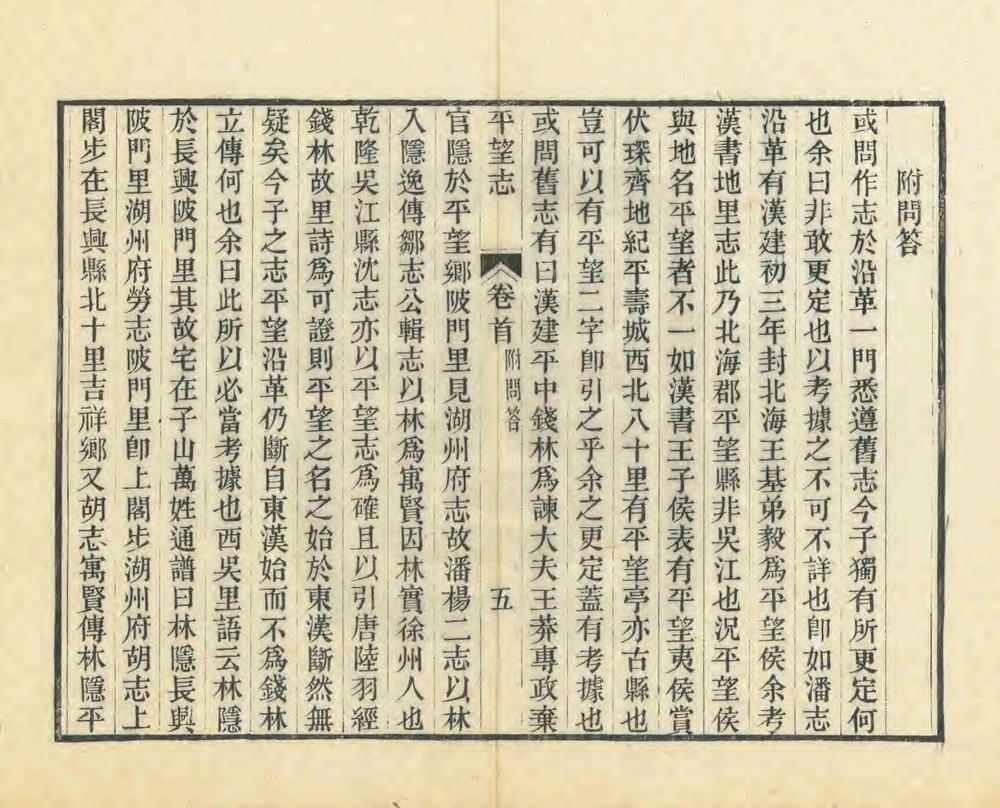 附問答
或問作志於沿革一門悉遵舊志今子獨有所更定何
也余曰非敢更定也以考據之不可不詳也卽如潘志
沿革有漢建初三年封北海王基弟毅爲平望侯余考
漢書地里志此乃北海郡平望縣非吳江也況平望侯
與地名平望者不一如漢書王子侯表有平望夷侯賞
伏琛齊地紀平壽城西北八十里有平望亭亦古縣也
豈可以有平望二字卽引之乎余之更定蓋有考據也
或問舊志有曰漢建平中錢林爲諫大夫王莽專政棄
平望志 卷首 附問答 五
官隱於平望鄉陂門里見湖州府志故潘楊二志以林
入隱逸傳鄒志公輯志以林爲寓賢因林實徐州人也
乾隆吳江縣沈志亦以平望志爲確且以引唐陸羽經
錢林故里詩爲可證則平望之名之始於東漢斷然無
疑矣今子之志平望沿革仍斷自東漢始而不爲錢林
立傳何也余曰此所以必當考據也西吳里語云林隱
於長興陂門里其故宅在子山萬姓通譜曰林隱長興
陂門里湖州府勞志陂門里卽上閣步湖州府胡志上
閣步在長興縣北十里吉祥鄉又胡志寓賢傳林隱平